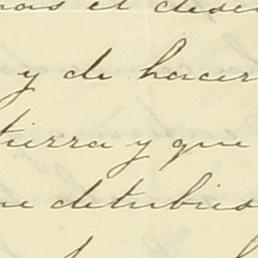 mas el dese
y de hacer
tierra y que
ue detubies